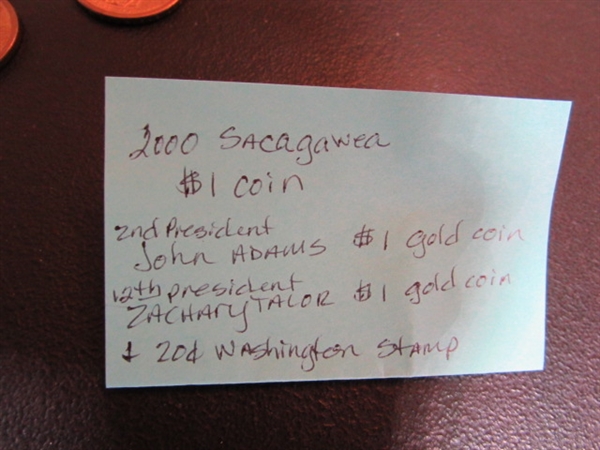 2000 SACagaWea
$1 coin
2nd President
John ADAMS $1 gold coin
12th president
ZACHARY TALOR $1 gold coin
1 20¢ Washington STAMP